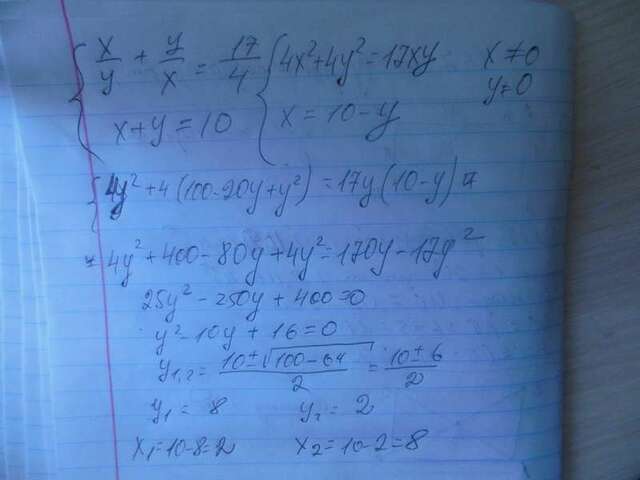 { x/y + y/x = 17/4 { 4x² + 4y² = 17xy x ≠ 0
x + y = 10 x = 10 - y y ≠ 0
{ 4y² + 4(100 - 20y + y²) = 17y(10 - y)
4y² + 400 - 80y + 4y² = 170y - 17y²
25y² - 250y + 400 = 0
y² - 10y + 16 = 0
y₁,₂ = (10 ± √(100 - 64))/2 = (10 ± 6)/2
y₁ = 8 y₂ = 2
x₁ = 10 - 8 = 2 x₂ = 10 - 2 = 8